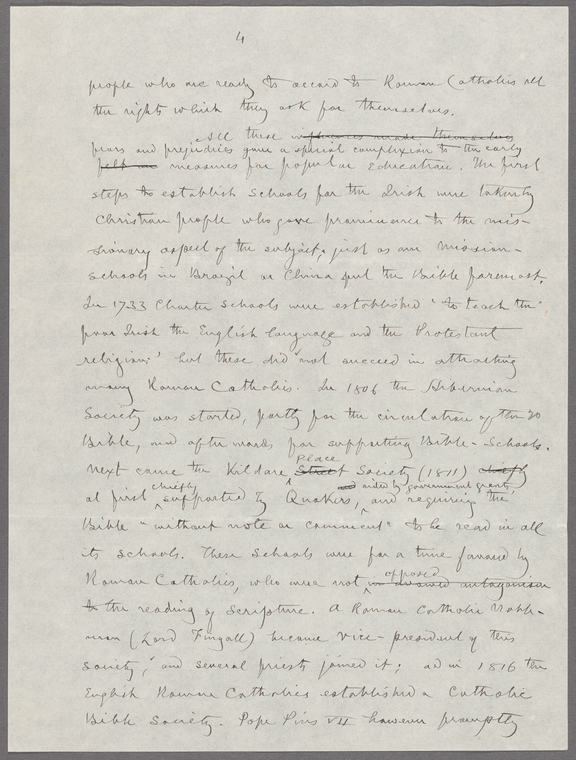 4
people who are ready to accord to Roman Catholics all
the rights which they ask for themselves.
All these influences made themselves
fears and prejudices gave a special complexion to the early
felt in measures for popular Education. The first
steps to establish Schools for the Irish were taken by
Christian people who gave prominence to the mis-
sionary aspect of the subject, just as our mission-
schools in Brazil or China put the Bible foremost.
In 1733 Charter Schools were established "to teach the
poor Irish the English language and the Protestant
religion;" but these did not succeed in attracting
many Roman Catholics. In 1806 the Hibernian
Society was started, partly for the circulation of the
Bible, and afterwards for supporting Bible-Schools.
Place
Next came the Kildare Street Society (1811) chiefly
chiefly and aided by government grants,
at first supported by Quakers, and requiring the
Bible "without note or comment" to be read in all
its schools. These schools were for a time favored by
opposed
Roman Catholics, who were not in avowed antagonism
to the reading of Scripture. A Roman Catholic Noble-
man (Lord Fingall) became Vice-president of this
Society, and several priests joined it; ad in 1816 the
English Roman Catholics established a Catholic
Bible Society. Pope Pius VII however promptly